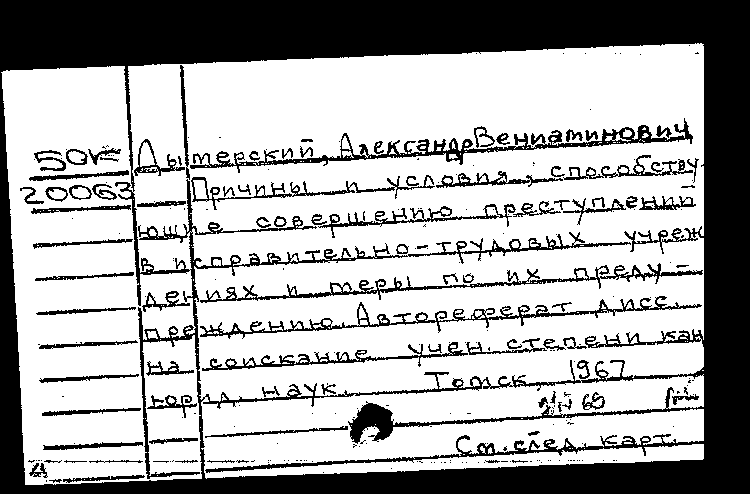 50к Дымерский, Александр Вениаминович
20063 Причины и условия, способству-
ющие совершению преступлений
в исправительно-трудовых учреж
дениях и меры по их преду-
преждению. Автореферат дисс.
на соискание учен. степени кан
юрид. наук. Томск, 1967
См. след. карт.